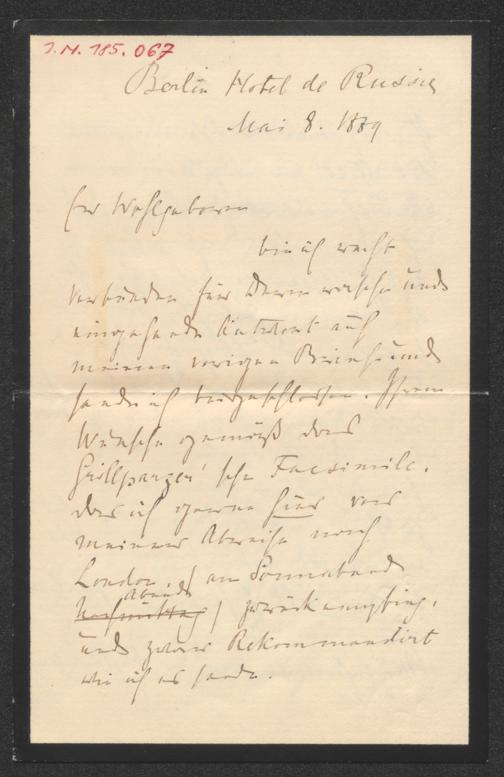 J.N. 185.067
Berlin Hotel de Russie
Mai 8. 1889
Ew Wohlgeboren
bin ich recht
verbunden für Deren rasche und
eingehende Antwort auf
meinen vorigen Brief und
sende ich beigeschlossen, Ihrem
Wunsche gemäß das
Grillparzer'sche Facsimile.
das ich gerne hier vor
meiner Abreise nach
London, / am Sonnabend
Abends
Nachmittag / zurückempfing,
und zwar Rekommandirt
wie ich es sende.